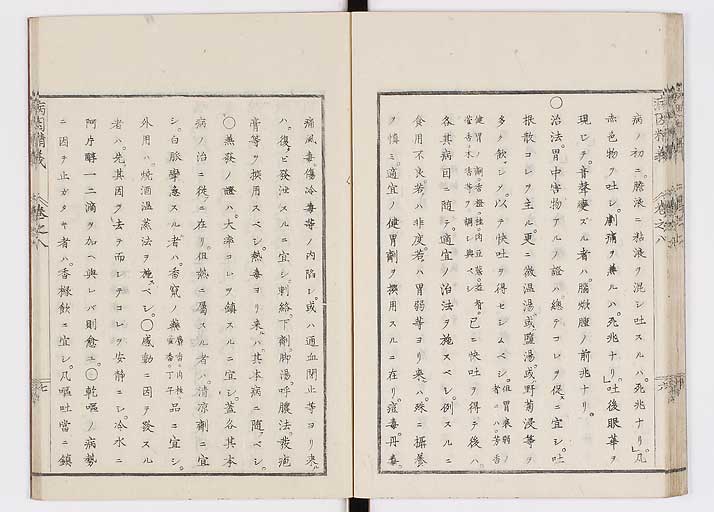 病ノ初ニ膽液ニ粘液ヲ混シ吐スルハ死兆ナリ凡
赤色物ヲ吐シ劇痛ヲ兼ルハ死兆ナリ吐後眼華ヲ
現シテ音聲變ズル者ハ腦焮腫ノ前兆ナリ
〇治法胃中害物アルノ證ハ總テコレヲ促スニ宜シ吐
根散コレヲ主ル更ニ微温湯或鹽湯或野菊浸等ヲ
多ク飲シメ以テ快吐ヲ得セシムベシ但胃衰弱ノ者ニハ芳香
健胃ノ劑
己ニ快吐ヲ得テ後ハ
各其病因ニ随テ適宜ノ治法ヲ施スベシ例スルニ
食用不良若ハ非度若ハ胃弱等ヨリ來ハ殊ニ攝養
ヲ慎ミ適宜ノ健胃劑ヲ撰用スルニ在リ痘毒丹毒
病因精義 卷之八 六
痛風毒傷冷毒等ノ内陥シ或ハ通血閉止等ヨリ來
ハ復ヒ發泄スルニ宜シ刺絡下劑脚湯呼膿法發疱
膏等ヲ撰用スベシ熱毒ヨリ來ハ其本病ニ随ベシ
〇蒸發ノ證ハ大率コレヲ鎮スルニ宜シ蓋各其本
病ノ治ニ従ニ在リ但熱ニ屬スル者ハ清凉劑ニ宜
シ白脈攣急スル者ハ香竄ノ藥麝香肉桂茴香丁子品ニ宜シ
外用ハ焼酒温蒸法ヲ施ベシ〇感動ニ因テ發スル
者ハ先其因ヲ去テ而シテコレヲ安静ニシ冷水ニ
阿片醇一二滴ヲ加ヘ與レバ則愈ユ〇乾嘔ノ病勢
ニ因テ止ガタキ者ハ香櫞飲ニ宜シ凡嘔吐當ニ鎮
病因精義 卷之八 七